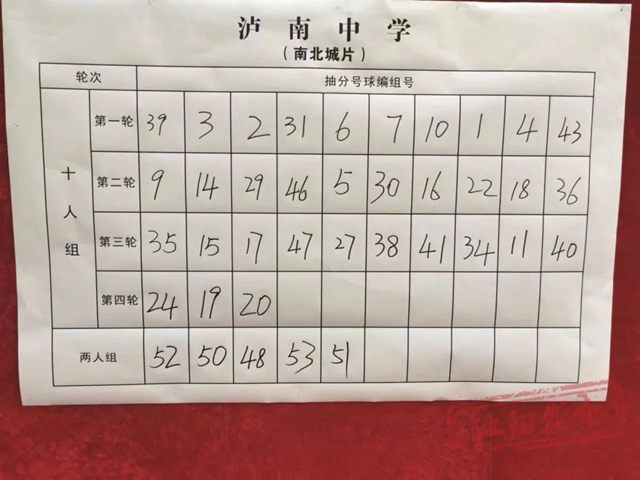 泸南中学
（南北城片）
轮次 抽分号球编组号
十人组
第一轮 39 3 2 31 6 7 10 1 4 43
第二轮 9 14 29 46 5 30 16 22 18 36
第三轮 35 15 17 47 27 38 41 34 11 40
第四轮 24 19 20
两人组 52 50 48 53 51